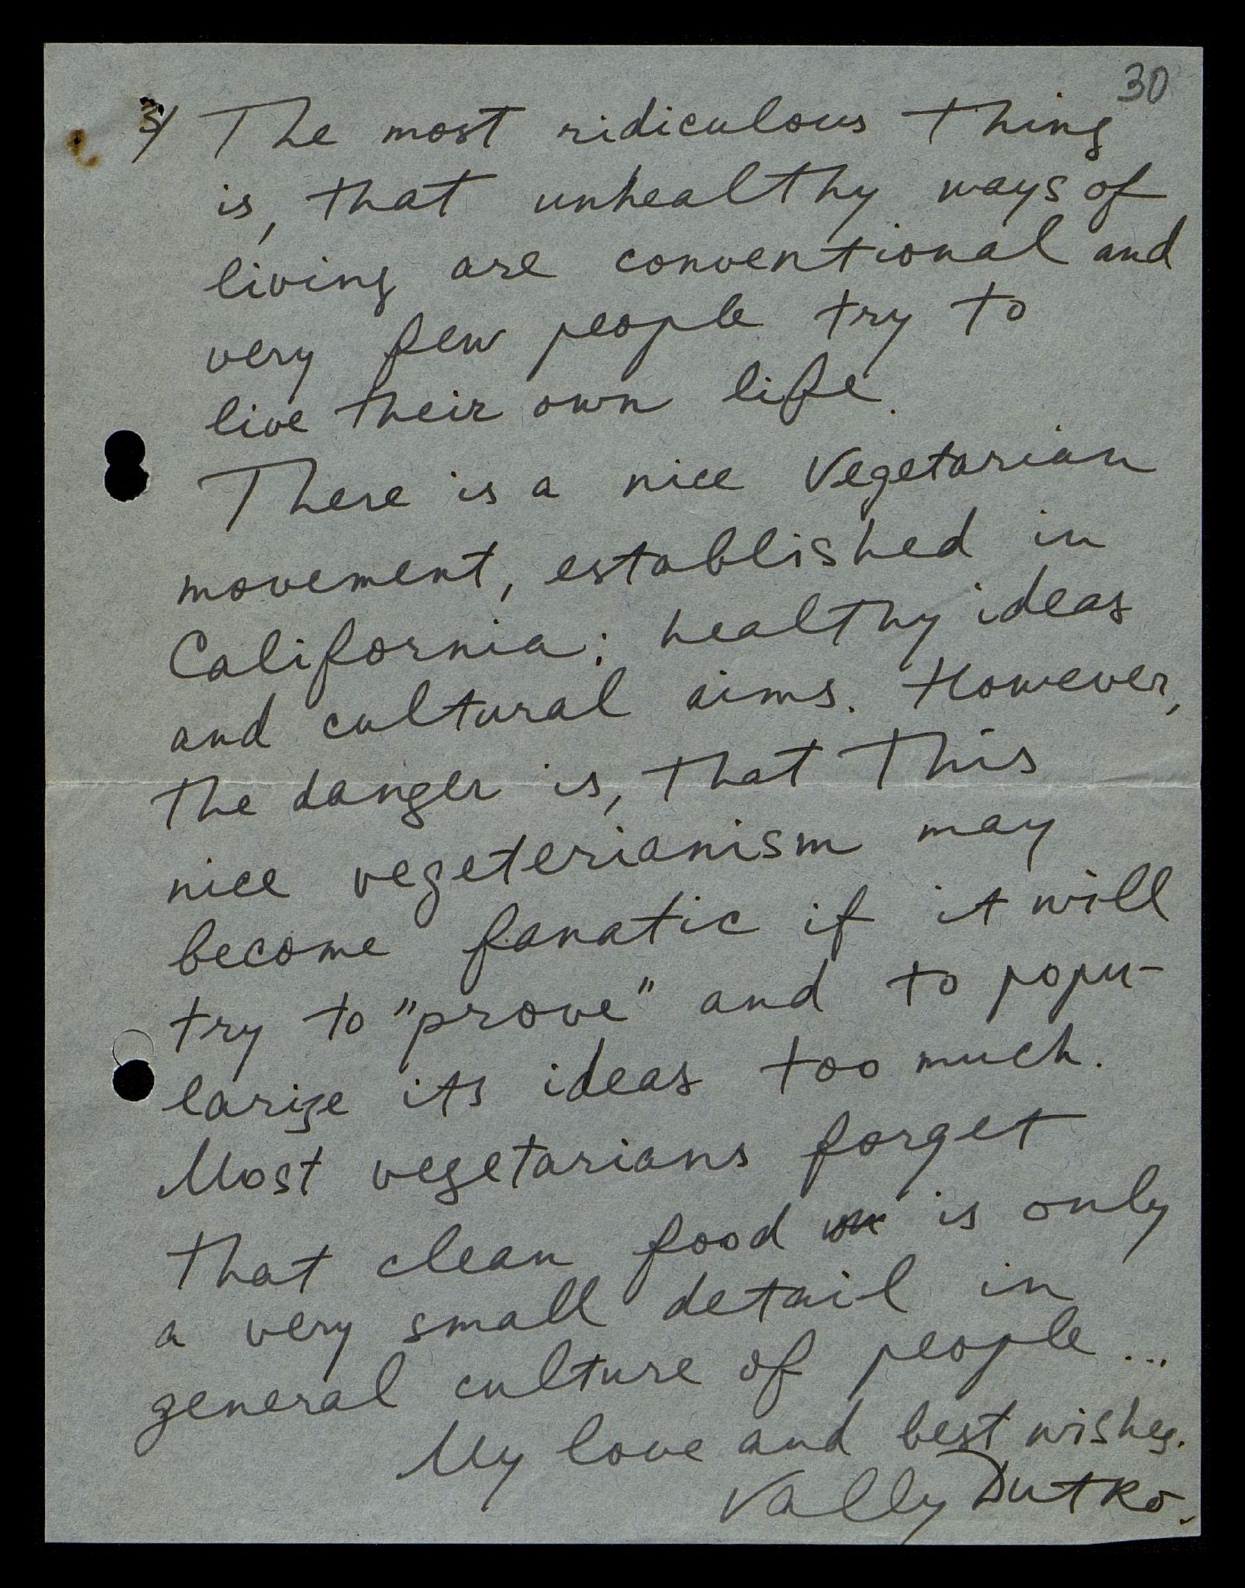 30
3/ The most ridiculous thing
is, that unhealthy ways of
living are conventional and
very few people try to
live their own life.
There is a nice Vegetarian
movement, established in
California: healthy ideas
and cultural aims. However,
the danger is, that this
nice vegeterianism may
become fanatic if it will
try to "prove" and to popu-
larize its ideas too much.
Most vegetarians forget
that clean food is only
a very small detail in
general culture of people...
My love and best wishes.
Vally Dutko.